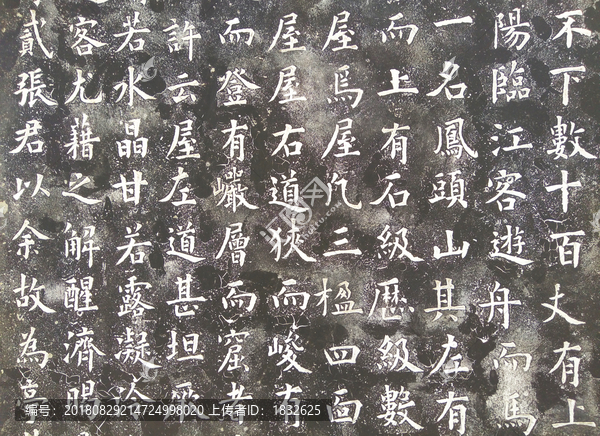 不下數十百丈有上
陽臨江客遊舟而馬
一名鳳頭山其左有
而上有石級歷級數
屋焉屋凡三楹四面
屋屋右道狹而峻有
而登有巖層而窟者
許云屋左道甚坦
若水晶甘若露凝冷
客尤藉之解醒濟
貳張君以余故為亭
编号：20180829214724998020 上传者ID：1832625